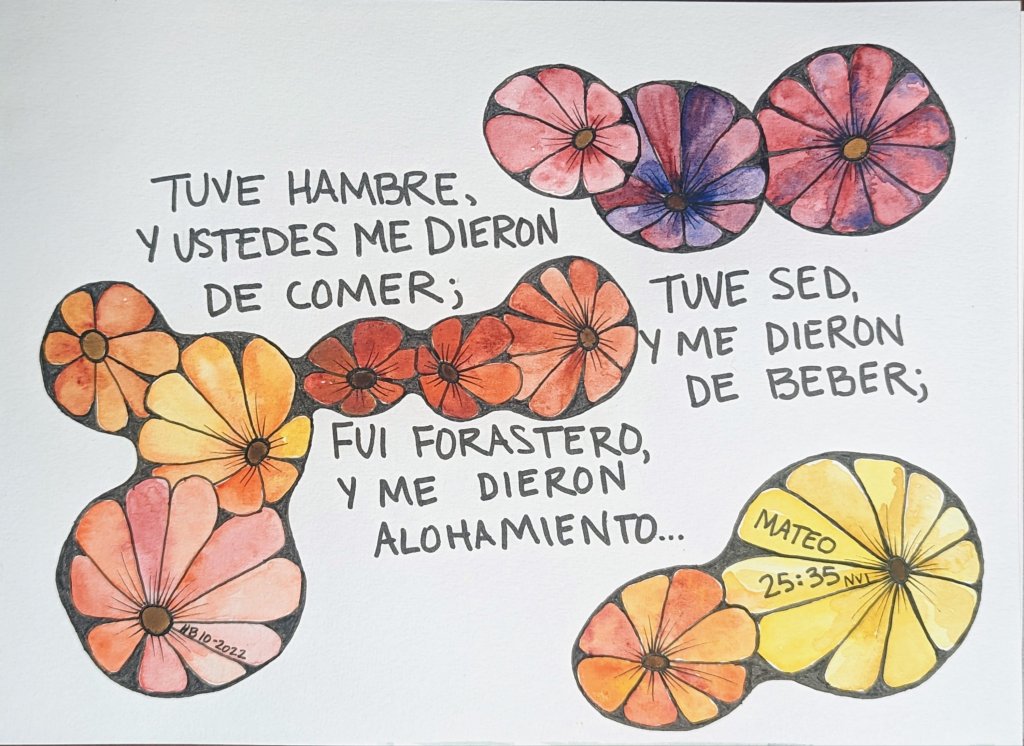 TUVE HAMBRE,
Y USTEDES ME DIERON
DE COMER;
TUVE SED,
Y ME DIERON
DE BEBER;
FUI FORASTERO,
Y ME DIERON
ALOHAMIENTO...
MATEO
25:35 NVI
HB 10-2022